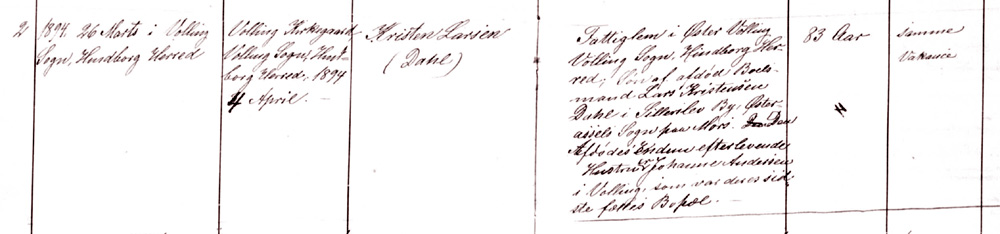 2
1894. 26 Marts i Volling
Sogn, Hindborg Herred
Volling Kirkegaard
Volling Sogn, Hind-
borg Herred, 1894
4 April. —
Kristen Larsen
(Dahl)
Fattiglem i Øster Volling
Volling Sogn, Hindborg Her-
red; Søn af afdød Boels-
mand Lars Kristensen
Dahl i Sillerslev By, Øster-
assels Sogn paa Mors. Den
Afdødes endnu efterlevende
Hustru Johanne Andersen
i Volling, som var deres sid-
ste fælles Bopæl. —
83 Aar
samme
Vakance